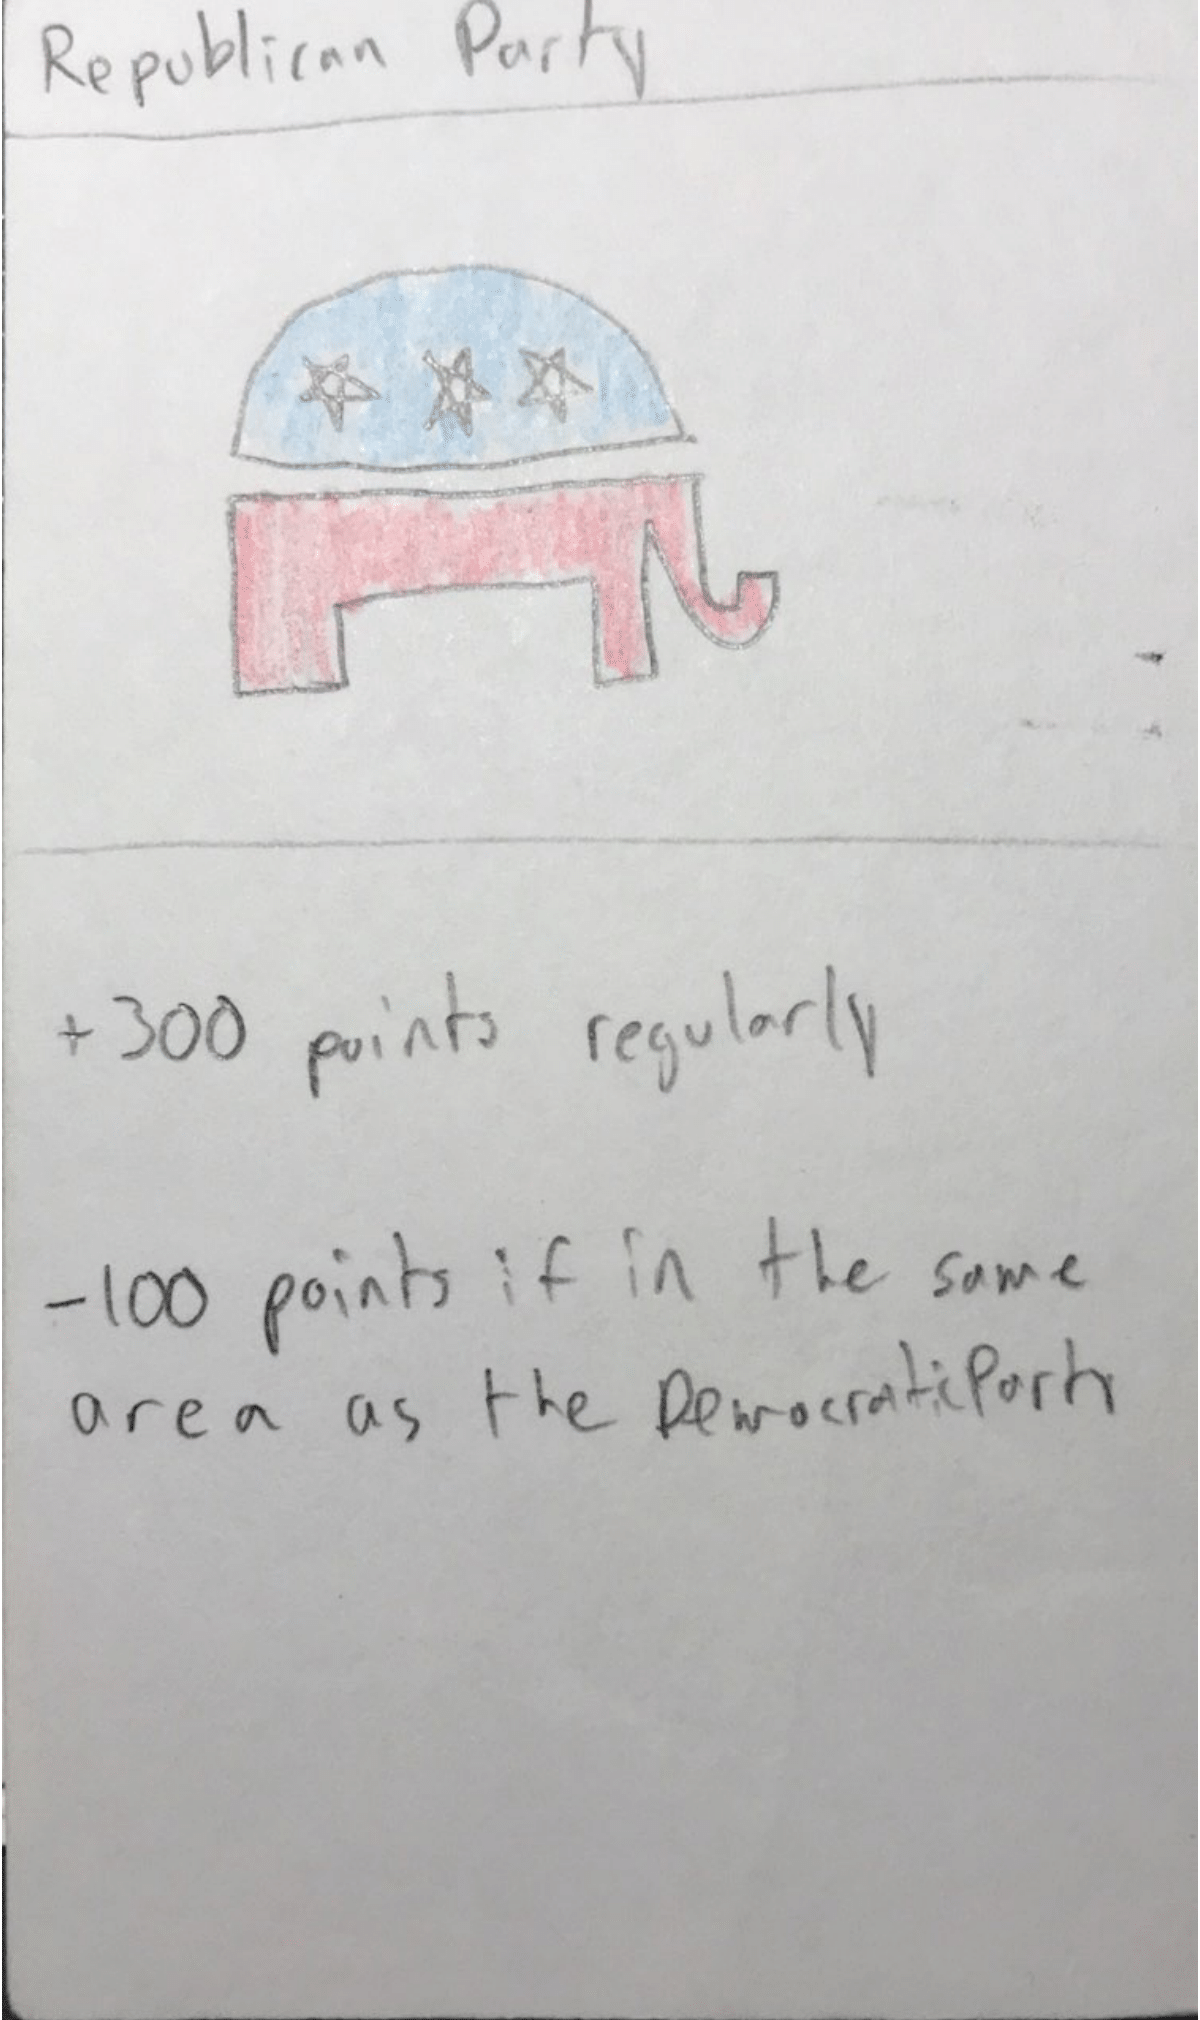 Republican Party
+300 points regularly
-100 points if in the same
area as the Democratic Party